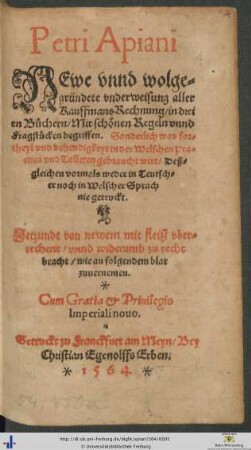 Petri Apiani
Newe vnnd wolge-
gründete vnderweisung aller
Kauffmans Rechnung / in drei
en Büchern / Mit schönen Regeln vnnd
Fragstücken begriffen. Sonderlich was for-
theyl vnd behendigkeyt in der Welschen Pra-
ctica vnd Tolleten gebraucht wirt / Deß-
gleichen vormals weder in Teutsch-
er noch in Welscher Sprach
nie getruckt.
Jetzundt von newem mit fleiß vber-
rechent / vnnd widerumb zu recht
bracht / wie an folgendem blat
zuuernemen.
*
Cum Gratia & Priuilegio
Imperiali nouo.
Getruckt zu Franckfurt am Meyn / Bey
Christian Egenolffs Erben.
* 1 5 6 4 *
© Universitätsbibliothek Freiburg